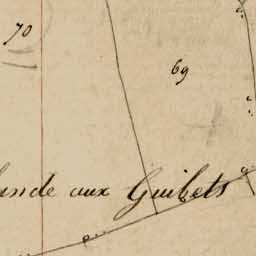 70
69
aux Guibets